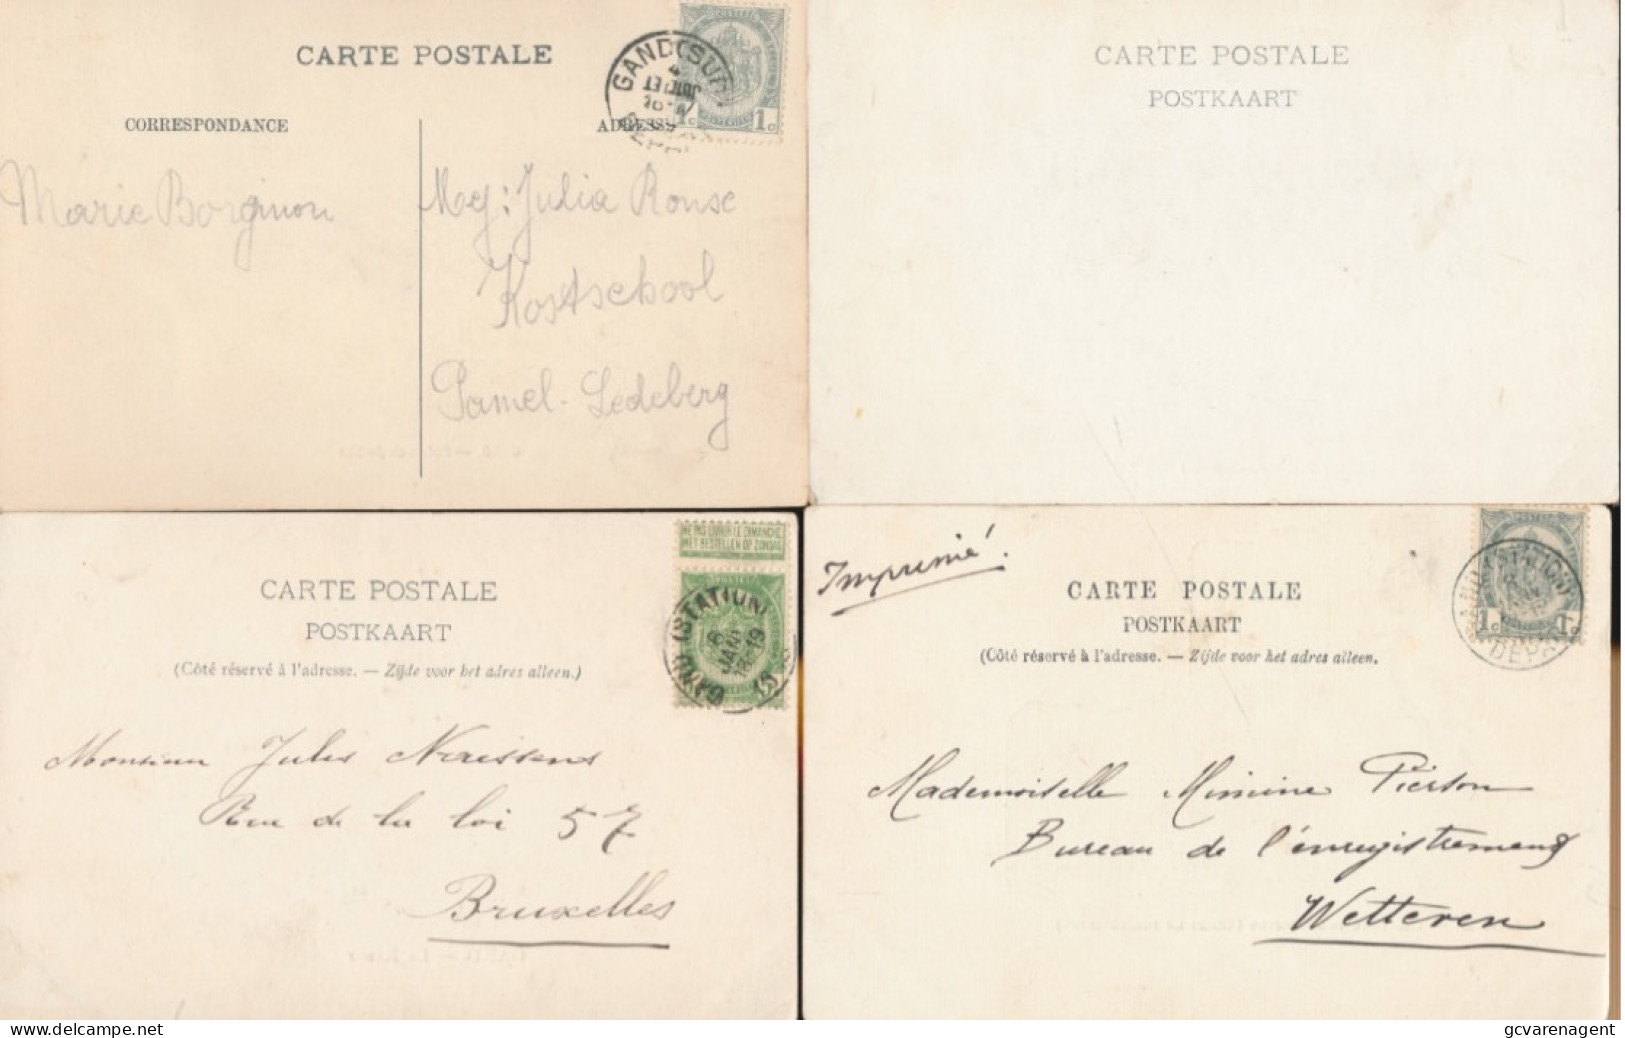 CARTE POSTALE
CORRESPONDANCE
ADRESSE
GAND (SUD
1c 1c
Marie Borginon
Mej: Julia Ronse
Kostschool
Pamel-Ledeberg
CARTE POSTALE
POSTKAART
NE PAS LIVRER LE DIMANCHE
NIET BESTELLEN OP ZONDAG
GAND (STATION)
6
JANV
18-19
CARTE POSTALE
POSTKAART
(Côté réservé à l'adresse. — Zijde voor het adres alleen.)
Monsieur Jules Neissens
Rue de la loi 57
Bruxelles
Imprimé
1c 1c
(STATION)
DEP
CARTE POSTALE
POSTKAART
(Côté réservé à l'adresse. — Zijde voor het adres alleen.
Mademoiselle Mimine Pierson
Bureau de l'enregistrement
Wetteren
www.delcampe.net
gcvarenagent